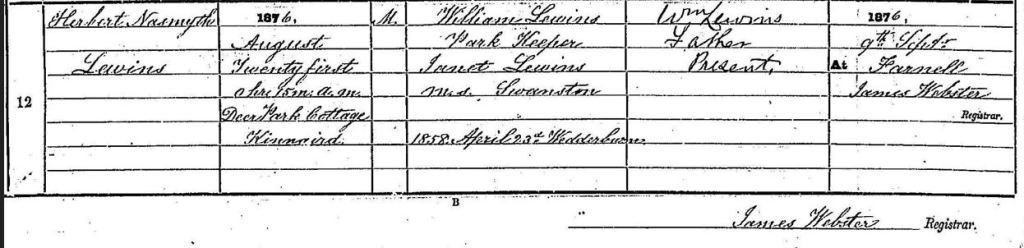 12
Herbert Nasmyth
Lewins
1876,
August
Twenty first
5h. 15m. a.m.
Deer Park Cottage
Kinnaird
M.
William Lewins
Park Keeper
Janet Lewins
m.s. Swanston
1858. April 23d Wedderburn
Wm Lewins
Father
Present.
1876,
9th Septr
At Farnell
James Webster
Registrar.
B
James Webster Registrar.